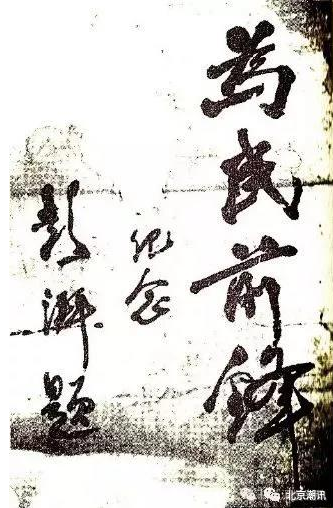 為民前鋒
纪念
彭湃题
北京潮讯